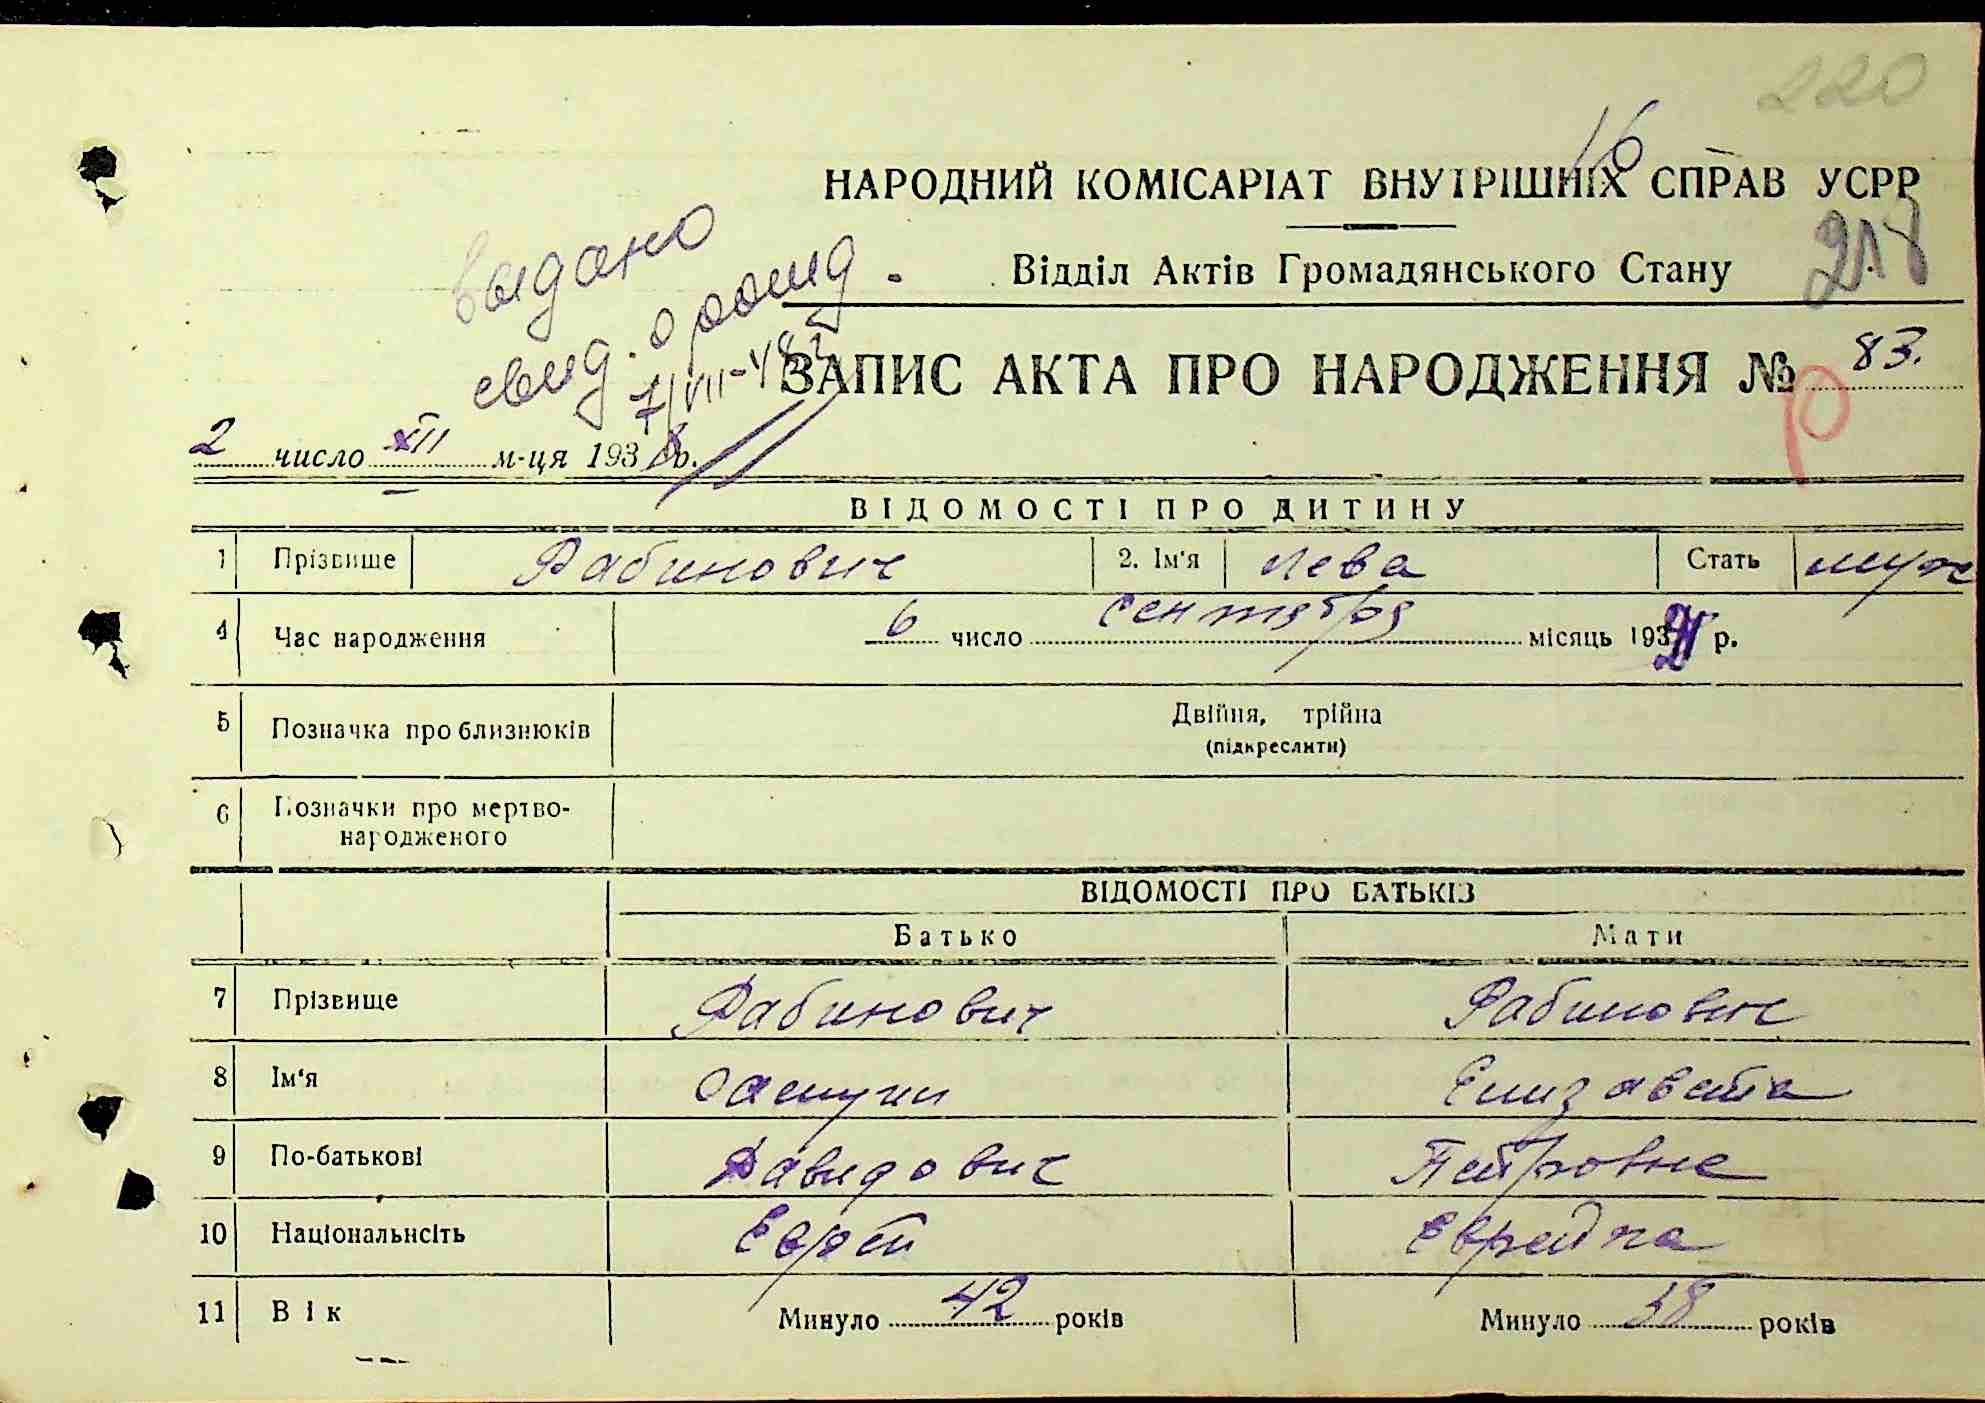 220
16
НАРОДНИЙ КОМІСАРІАТ ВНУТРІШНІХ СПРАВ УСРР
Відділ Актів Громадянського Стану
218
выдано
свид. о рожд
7/VII-48
ЗАПИС АКТА ПРО НАРОДЖЕННЯ № 83.
р
2 число XII м-ця 193 р.
ВІДОМОСТІ ПРО ДИТИНУ
1 Прізвище Рабинович 2. Ім'я Лева Стать муж
4 Час народження 6 число сентября місяць 193 р.
5 Позначка про близнюків Двійня, трійна
(підкреслити)
6 Позначки про мертво-
народженого
ВІДОМОСТІ ПРО БАТЬКІВ
Батько Мати
7 Прізвище Рабинович Рабинович
8 Ім'я Самуил Елизавета
9 По-батькові Давидович Петровна
10 Національність Еврей Еврейка
11 Вік Минуло 42 років Минуло 38 років